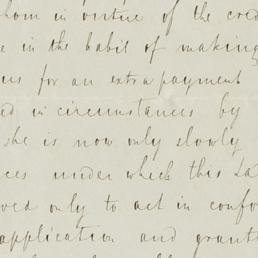 whom in virtue of the cred
e in the habit of making
us for an extra payment
ed in circumstances by
she is now only slowly
ces under which this La
ved only to act in confor
application and granti